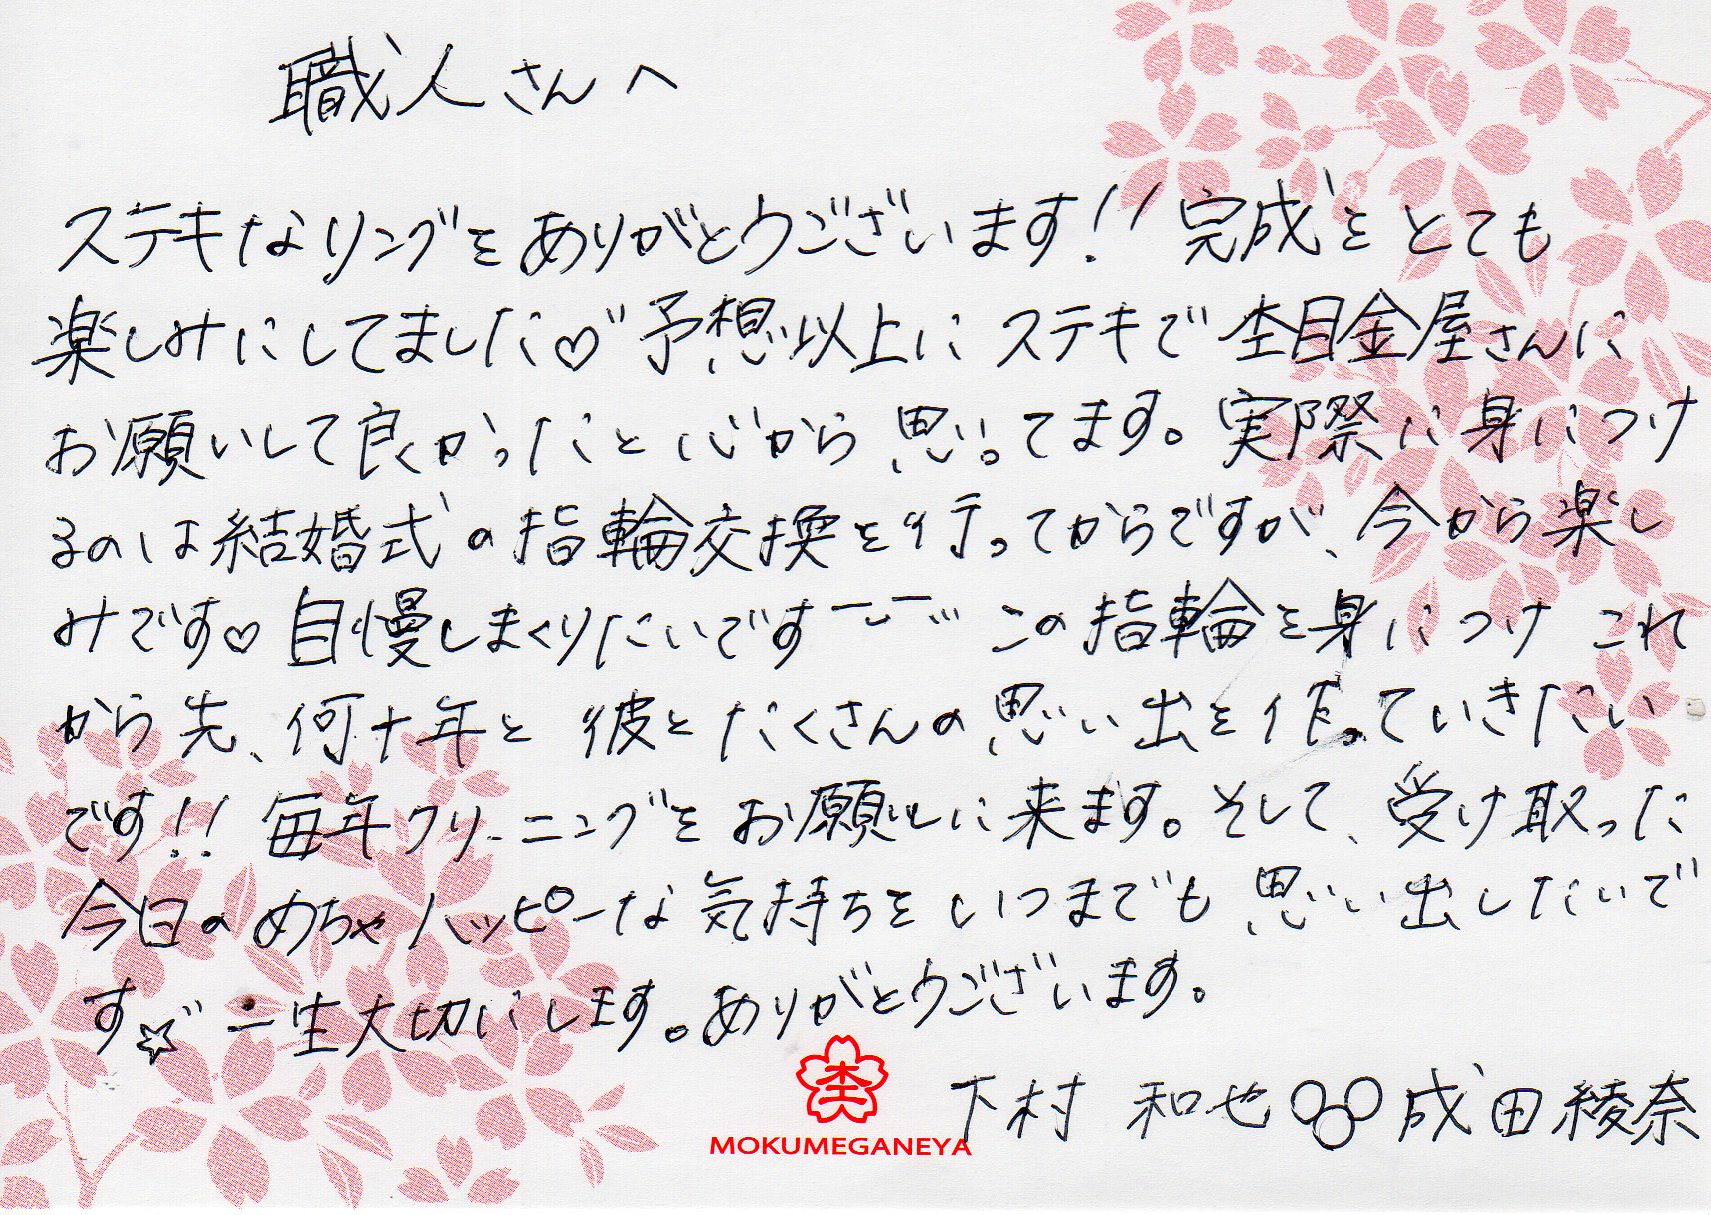 職人さんへ
ステキなリングをありがとうございます!!完成をとても
楽しみにしてました♡予想以上にステキで杢目金屋さんに
お願いして良くかったと心から思ってます。実際に身につけ
るのは結婚式の指輪交換を行ってからですが、今から楽し
みです♡自慢しまくりたいです この指輪を身につけ これ
から先、何十年と彼とたくさんの思い出を作っていきたい
です!!毎年クリーニングをお願いに来ます。そして、受け取った
今日のめちゃハッピーな気持ちをいつまでも思い出したいで
す☆一生大切にします。ありがとうございます。
杢
MOKUMEGANEYA
下村 和也 成田綾奈